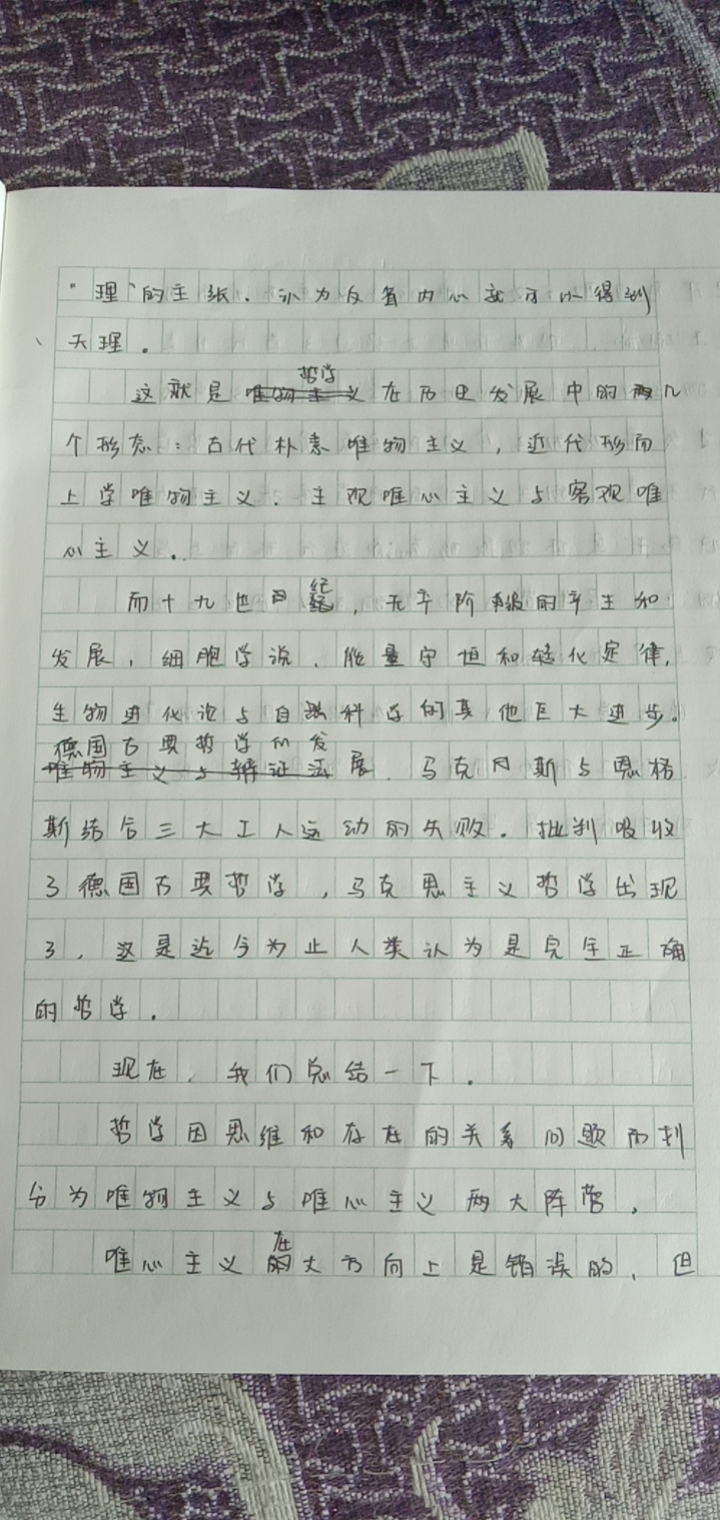 “理”的主张，认为反省内心就可以得到
天理。
这就是哲学在历史发展中的几
个形态：古代朴素唯物主义，近代形而
上学唯物主义、主观唯心主义与客观唯
心主义。
而十九世纪，无产阶级的产生和
发展，细胞学说、能量守恒和转化定律、
生物进化论与自然科学的其他巨大进步。
德国古典哲学的发展、马克思与恩格
斯结合三大工人运动的失败，批判吸收
了德国古典哲学，马克思主义哲学出现
了，这是迄今为止人类认为是完全正确
的哲学。
现在，我们总结一下。
哲学因思维和存在的关系问题而划
分为唯物主义与唯心主义两大阵营，
唯心主义在大方向上是错误的，但